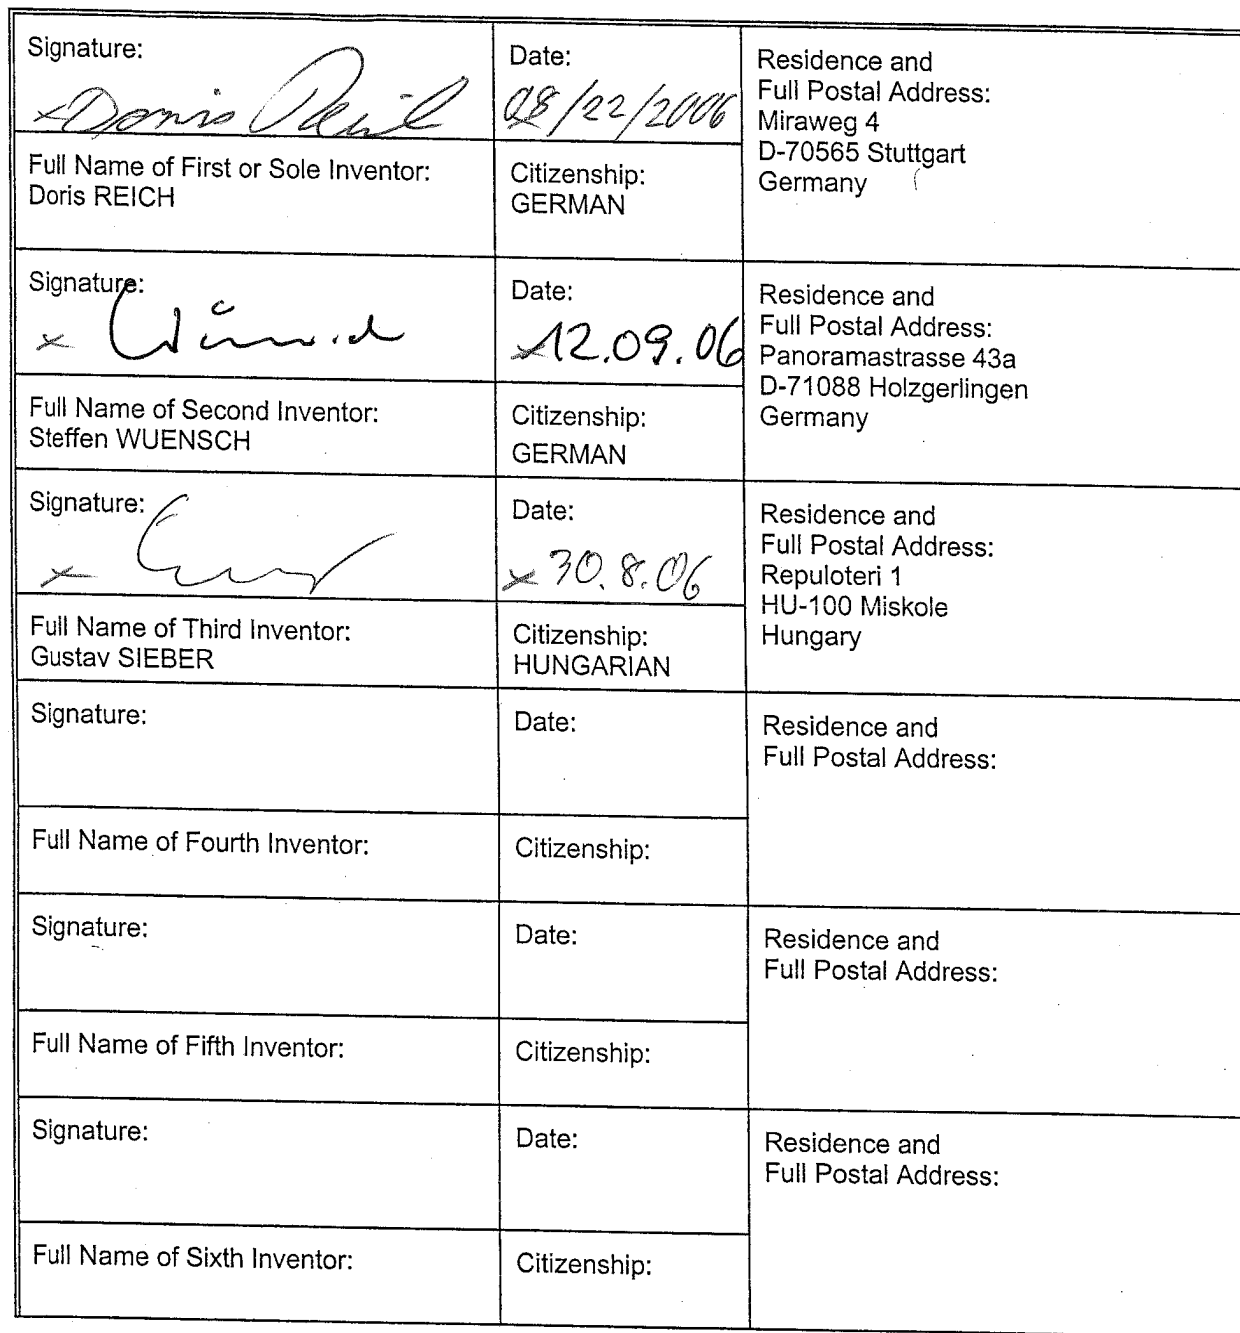 Signature:
Doris Reich
Date:
08/22/2006
Residence and
Full Postal Address:
Miraweg 4
D-70565 Stuttgart
Germany
Full Name of First or Sole Inventor:
Doris REICH
Citizenship:
GERMAN
Signature:
x
Date:
x12.09.06
Residence and
Full Postal Address:
Panoramastrasse 43a
D-71088 Holzgerlingen
Germany
Full Name of Second Inventor:
Steffen WUENSCH
Citizenship:
GERMAN
Signature:
x
Date:
x 30.8.06
Residence and
Full Postal Address:
Repuloteri 1
HU-100 Miskole
Hungary
Full Name of Third Inventor:
Gustav SIEBER
Citizenship:
HUNGARIAN
Signature:
Date:
Residence and
Full Postal Address:
Full Name of Fourth Inventor:
Citizenship:
Signature:
Date:
Residence and
Full Postal Address:
Full Name of Fifth Inventor:
Citizenship:
Signature:
Date:
Residence and
Full Postal Address:
Full Name of Sixth Inventor:
Citizenship: